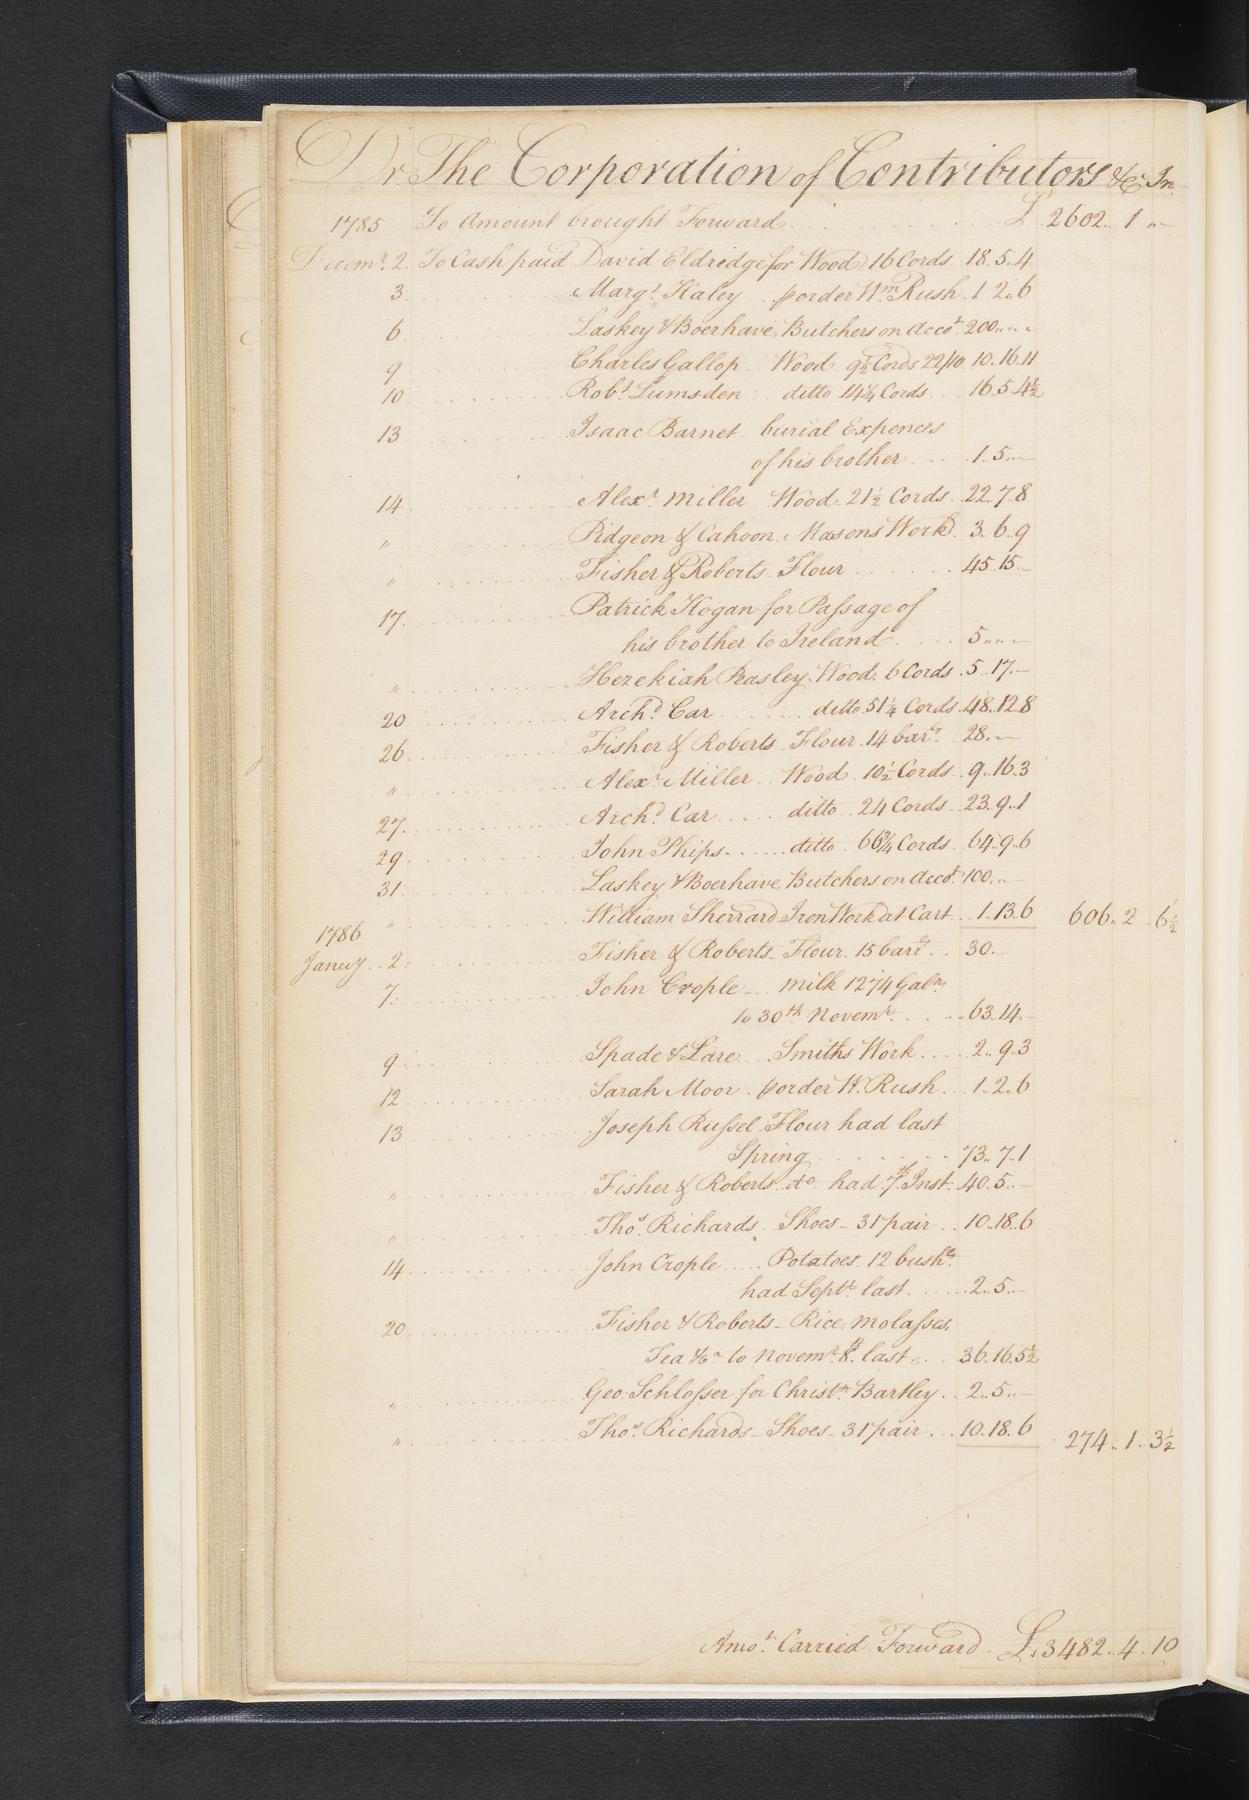 Dr The Corporation of Contributors &c. In
1785 To Amount brought Forward £ 2602.. 1 ..
Decemr. 2. To Cash paid David Eldredge for Wood 16 Cords 18. 5. 4
3 Margt. Haley p order Wm. Rush 1 2.. 6
6 Laskey & Boerhave, Butchers on Accot. 200.. .. ..
9 Charles Gallop Wood 9½ Cords 22/10 10. 16. 11
10 Robt. Lumsden ditto 14¼ Cords 16. 5. 4½
13 Isaac Barnet burial Expences
of his brother 1.. 5..
14 Alexr. Miller Wood 21½ Cords 22. 7. 8
" Pidgeon & Cahoon Masons Work 3. 6.. 9
" Fisher & Roberts Flour 45. 15
17 Patrick Hogan for Passage of
his brother to Ireland 5.. .. ..
" Hezekiah Beasley Wood 6 Cords 5.. 17..
20 Archd. Car ditto 51¼ Cords 48. 12. 8
26 Fisher & Roberts Flour 14 barrs. 28..
" Alexr. Miller Wood 10½ Cords 9.. 16. 3
27. Archd. Car ditto 24 Cords 23. 9.. 1
29 John Phips ditto 66¾ Cords 64. 9.. 6
31 Laskey & Boerhave, Butchers on Accot. 100..
" William Sherrard Iron Work at Cart 1. 13. 6 606.. 2 .. 6½
1786
Janury 2 Fisher & Roberts Flour 15 barrs. 30.
7. John Crople milk 1274 Galns.
to 30th. Novemr. 63. 14.
9 Spade & Lare Smiths Work 2.. 9. 3
12 Sarah Moor p order W. Rush 1.. 2. 6
13 Joseph Russel Flour had last
Spring 73.. 7. 1
" Fisher & Roberts do. had 7th Inst. 40. 5..
" Thos. Richards Shoes 31 pair 10. 18. 6
14 John Crople Potatoes 12 bushs.
had Septr. last 2.. 5..
20 Fisher & Roberts Rice, molasses,
Tea &c. to Novemr. 8th. last 36. 16. 5½
" Geo. Schlosser for Christn. Bartley 2.. 5..
" Thos. Richards Shoes 31 pair 10. 18. 6 274.. 1.. 3½
Amot. Carried Forward £ 3482. 4. 10